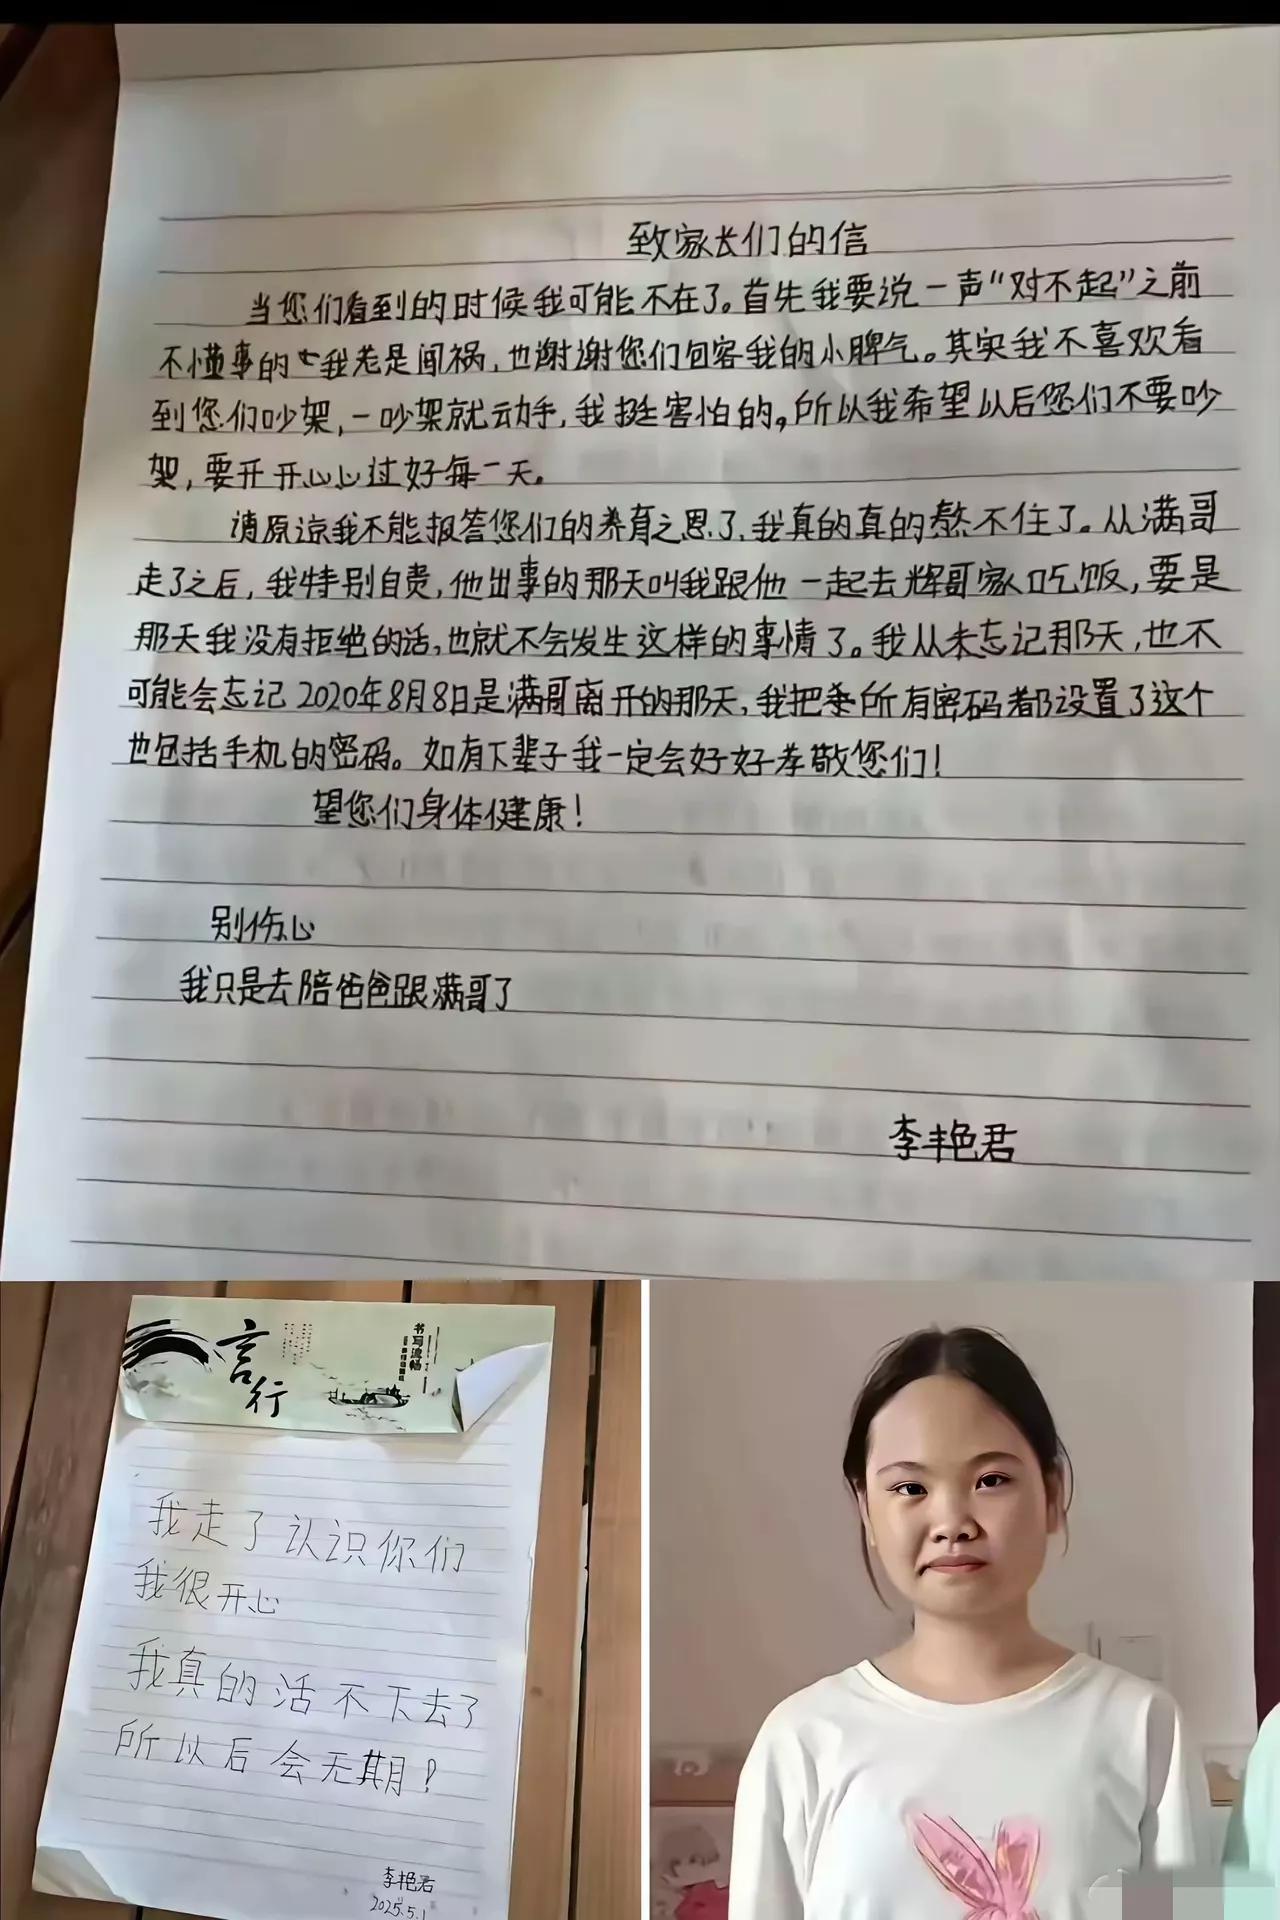 致家长们的信
当您们看到的时候我可能不在了。首先我要说一声“对不起”之前
不懂事的我老是闯祸,也谢谢您们包容我的小脾气。其实我不喜欢看
到您们吵架,一吵架就动手,我挺害怕的。所以我希望以后您们不要吵
架,要开开心心过好每一天。
请原谅我不能报答您们的养育之恩了,我真的真的熬不住了。从满哥
走了之后,我特别自责,他出事的那天叫我跟他一起去辉哥家吃饭,要是
那天我没有拒绝的话,也就不会发生这样的事情了。我从未忘记那天,也不
可能会忘记2020年8月8日是满哥离开的那天,我把所有密码都设置了这个
也包括手机的密码。如有下辈子我一定会好好孝敬您们!
望您们身体健康!
别伤心
我只是去陪爸爸跟满哥了
李艳君
言行
书写流畅
我走了认识你们
我很开心
我真的活不下去了
所以后会无期!
李艳君
2025.5.1